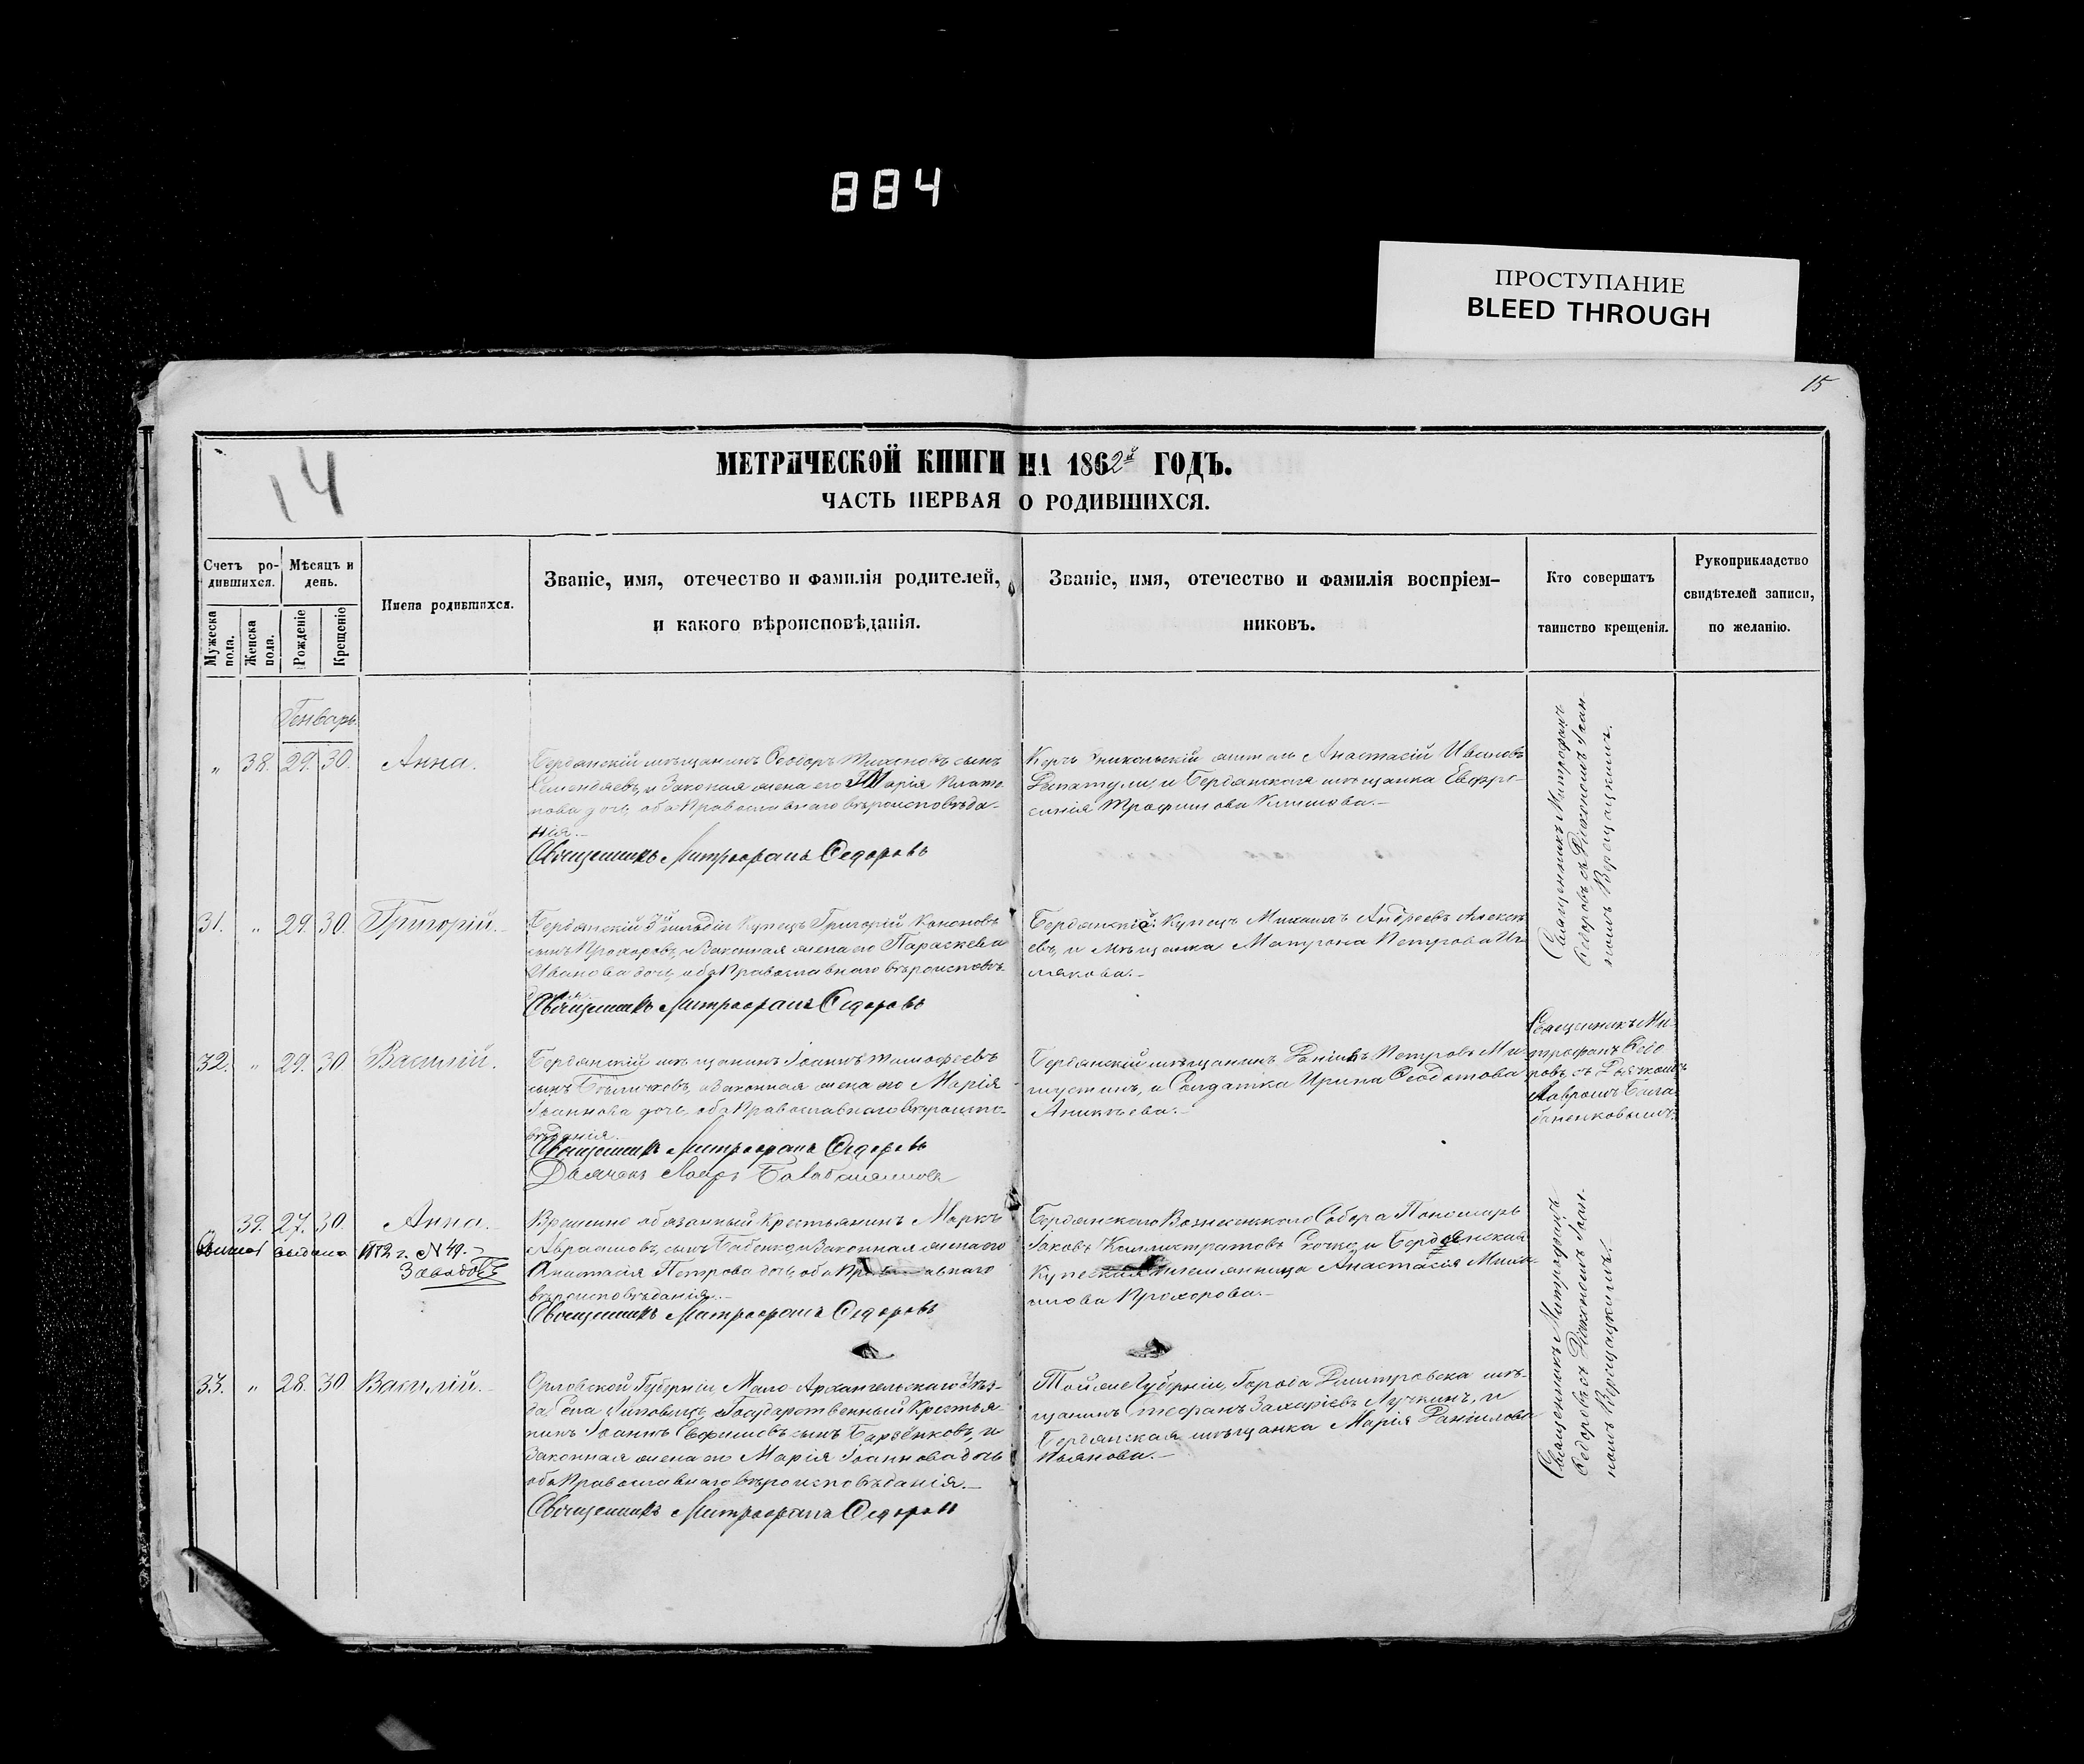 884
ПРОСТУПАНИЕ
BLEED THROUGH
15
14
МЕТРИЧЕСКОЙ КНИГИ НА 1862й ГОДЪ.
ЧАСТЬ ПЕРВАЯ О РОДИВШИХСЯ.
Счетъ ро-
дившихся.
Мѣсяцъ и
день.
Мужеска
пола.
Женска
пола.
Рожденіе
Крещеніо
Имена родившихся.
Званіе, имя, отечество и фамилія родителей,
и какого вѣроисповѣданія.
Званіе, имя, отечество и фамилія воспріем-
никовъ.
Кто совершатъ
таинство крещенія.
Рукоприкладство
свидѣтелей записи,
по желанію.
Генварь
„ 38. 29. 30. Анна.
Бердянскій мѣщанинъ Ѳеодоръ Тихоновъ сынъ
и Законая жена его Марія Плато-
нова дочь, оба Православнаго вѣроисповѣда-
нія.-
Священникъ Митрофанъ Ѳедоровъ
Анастасій Ивановъ
и Бердянская мѣщанка Евфро-
синія Трофимова Климова.-
Священникъ Митрофанъ
Ѳедоровъ съ Діакономъ Іоан-
номъ Верещацкимъ.
31. „ 29. 30. Григорій.
Бердянскій 3й гильдіи Купецъ Григорій Кононовъ
сынъ Прохоровъ, и Законная жена его Параскева
Иванова дочь, оба Православнаго вѣроисповѣ-
Священникъ Митрофанъ Ѳедоровъ
Купецъ Михаилъ Андреевъ Алексѣ-
евъ, и Мѣщанка Матрона Петрова
32. „ 29. 30 Василій.
Бердянскій мѣщанинъ Іоаннъ Тимофеевъ
сынъ и законная жена его Марія
Іоаннова дочь, оба Православнаго вѣроиспо-
вѣданія.
Священникъ Митрофанъ Ѳедоровъ
Дьячекъ Лавръ
Бердянскій мѣщанинъ Даніилъ Петровъ Ми-
и Солдатка Ирина Ѳеодотова
Аникѣева.-
Священникъ Ми-
трофанъ Ѳедо-
ровъ съ Дьячкомъ
Лавромъ
„ 39. 27. 30. Анна.
выдана г. N 49.-
Временно обязанный Крестьянинъ Маркъ
Авраамовъ сынъ Бабенко, и Законная жена его
Анастасія Петрова дочь, оба Православнаго
вѣроисповѣданія.-
Священникъ Митрофанъ Ѳедоровъ
Бердянскаго Вознесенскаго Собора Пономарь
Іаковъ Каллистратовъ и Бердянская
Купеческая племянница Анастасія
Прохорова.-
33. „ 28. 30 Василій.-
Орловской Губерніи, Мало Архангельскаго Уѣз-
да Села Государственный Крестья-
нинъ Іоаннъ Ефимовъ сынъ и
Законная жена его Марія Іоаннова дочь
оба Православнаго вѣроисповѣданія.-
Священникъ Митрофанъ Ѳедоровъ
Той же Губерніи, Города Дмитровска мѣ-
щанинъ Стефанъ Захаріевъ Лучкинъ, и
Бердянская мѣщанка Марія Даніилова
Священникъ Митрофанъ
Ѳедоровъ съ Діакономъ Іоан-
номъ Верещацкимъ.